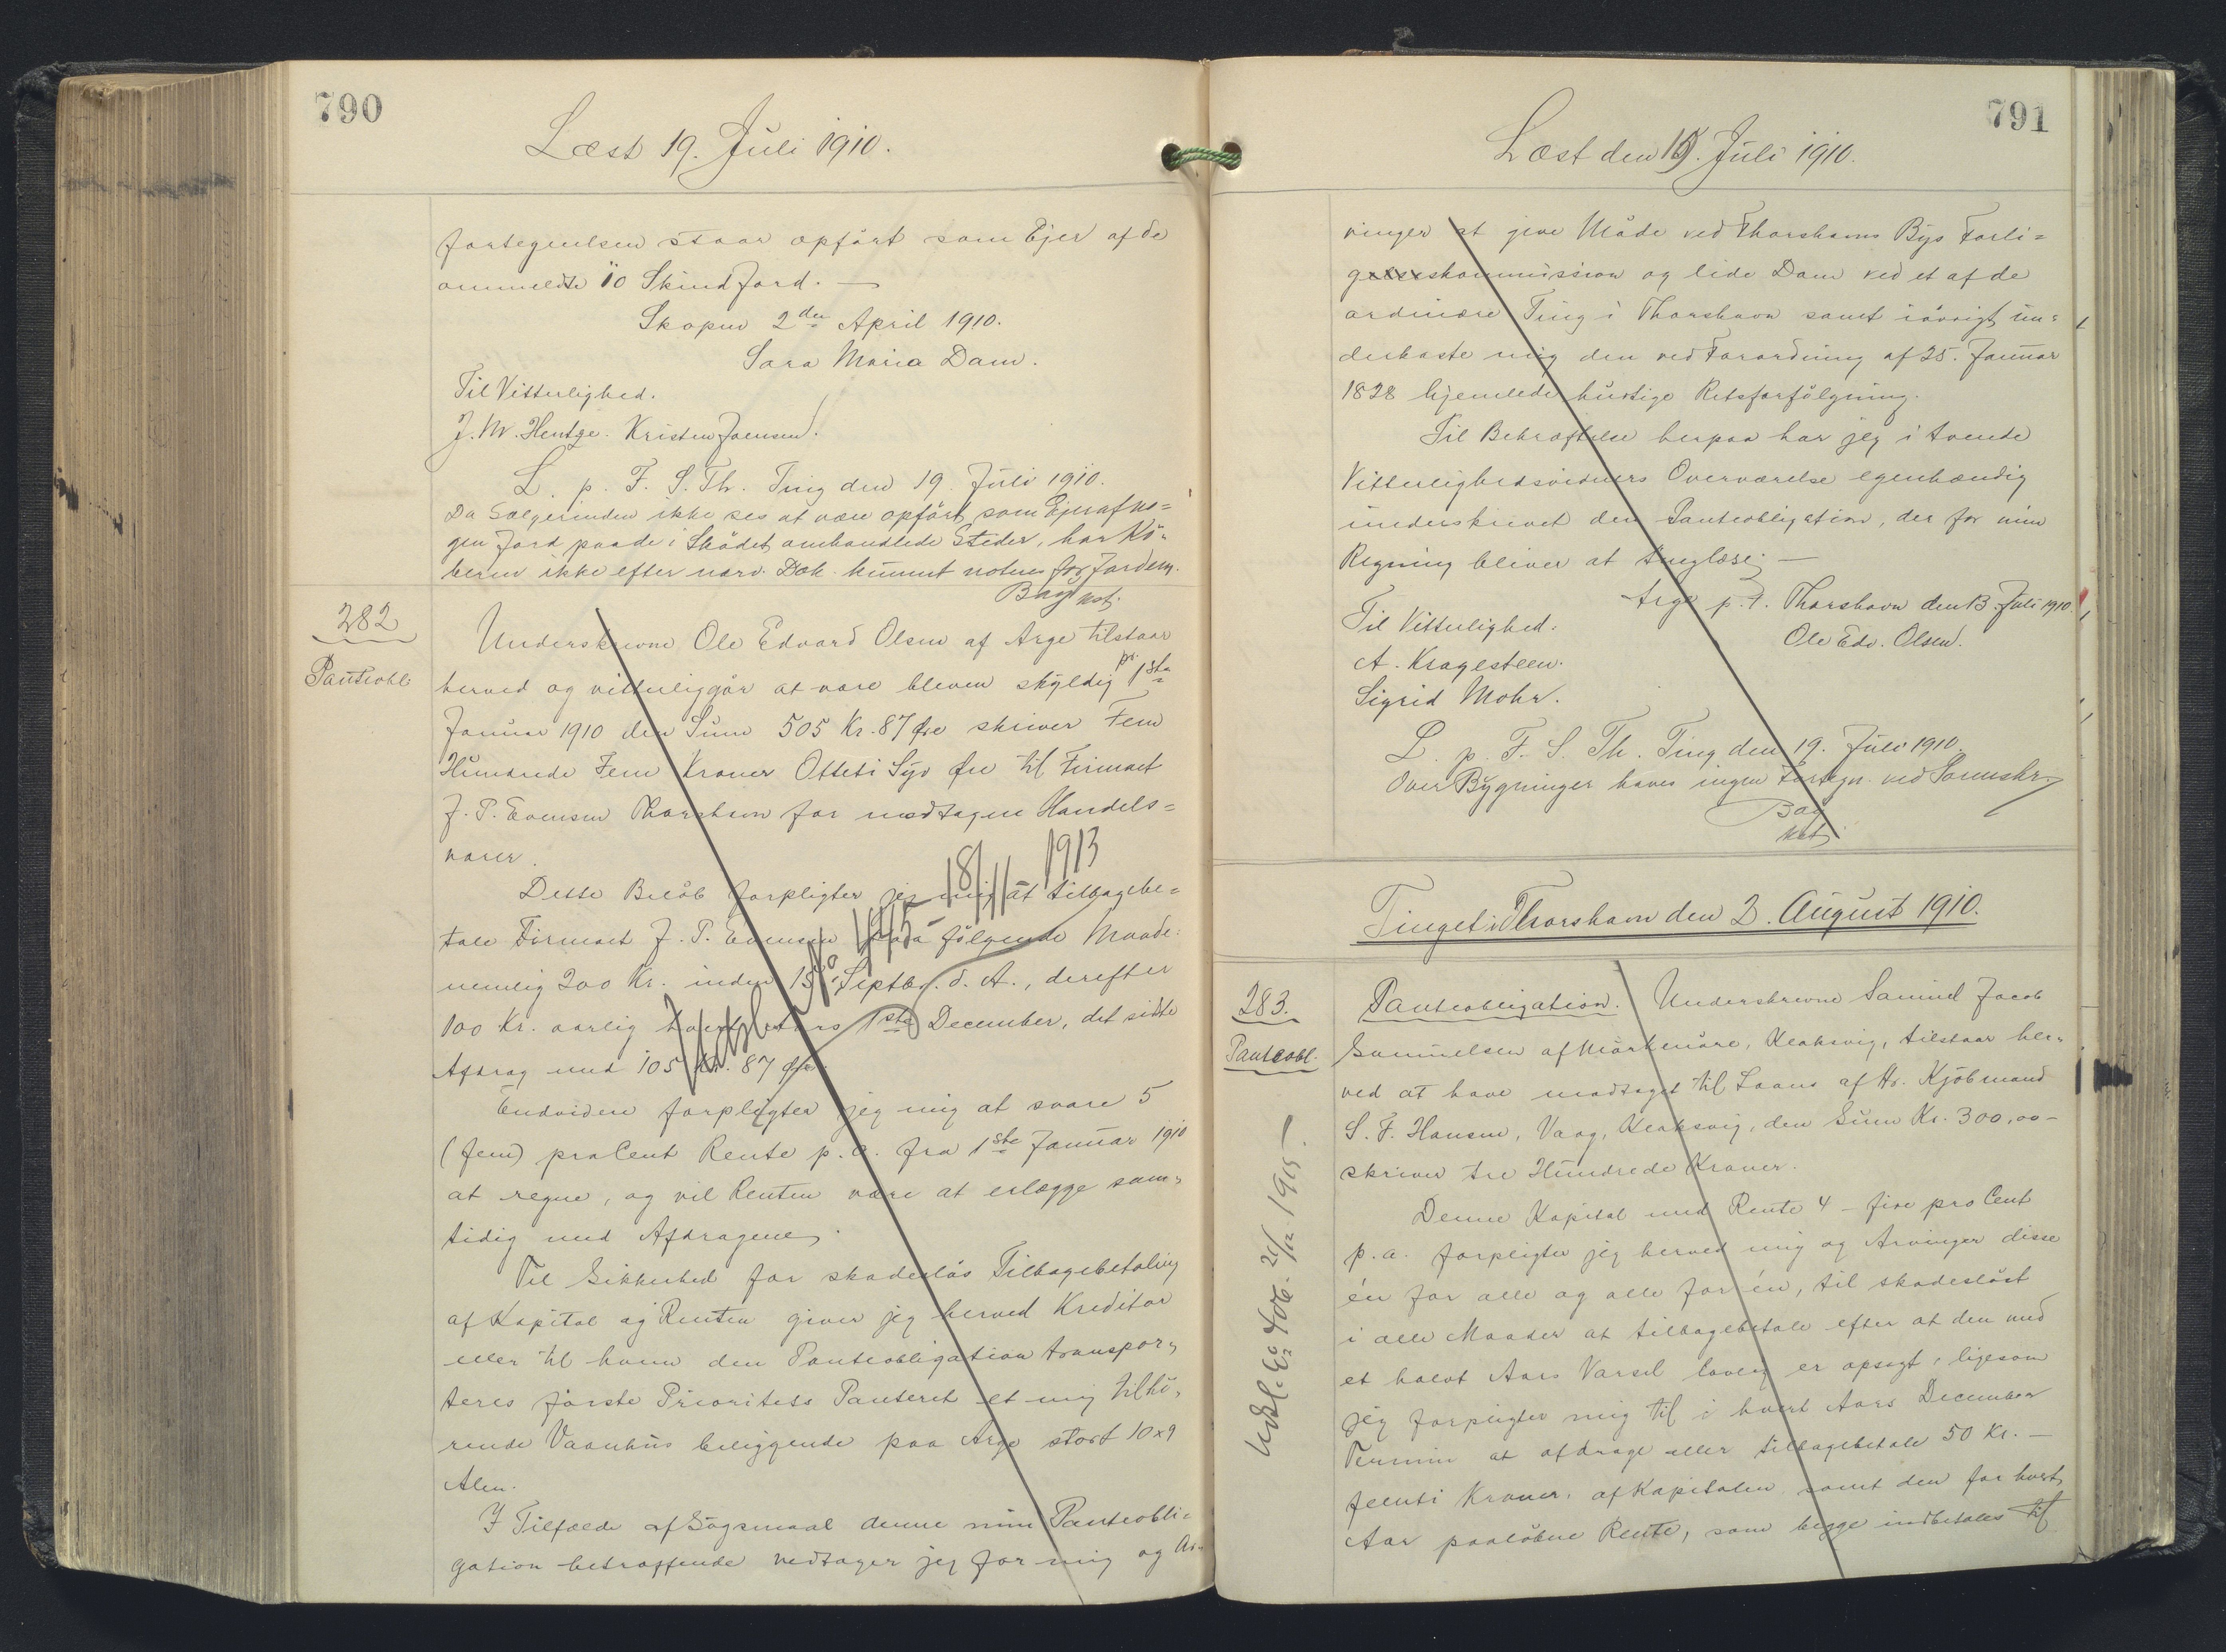 790
Læst 19. Juli 1910.
fortegnelsen staar opført som Ejer af de
ommeldte 10 Skind Jord. —
Skopun 2den April 1910.
Sara Maria Dam.
Til Vitterlighed.
J. M. Hentze. Kristen Joensen.
L. p. F. S. Th. Ting den 19. Juli 1910.
Da Sælgerinden ikke ses at være opført som Ejer af no=
gen Jord paa de i Skødet omhandlede Steder, har Kø=
beren ikke efter nærv. Dok. kunnet noteres for Jorden.
Bay kst.
282
Panteobl.
Underskrevne Ole Edvard Olsen af Arge tilstaar
herved og vitterliggør at være bleven skyldig pr. 1ste
Januar 1910 den Sum 505 Kr. 87 Øre skriver Fem
Hundrede Fem Kroner Otteti Syv Øre til Firmaet
J. P. Evensen Thorshavn for modtagne Handels=
varer.
Dette Beløb forpligter jeg mig at tilbagebe=
tale Firmaet J. P. Evensen paa følgende Maade:
nemlig 200 Kr. inden 15de Septbr. d. A., derefter
100 Kr. aarlig hvert Aars 1ste December, det sidste
Afdrag med 105 Kr. 87 Øre.
Udsl.
18/11 1913
Endvidere forpligter jeg mig at svare 5
(fem) pro Cent Rente p. a. fra 1ste Januar 1910
at regne, og vil Renten være at erlægge sam=
tidig med Afdragene.
Til Sikkerhed for skadesløs Tilbagebetaling
af Kapital og Renten giver jeg herved Kreditor
eller til hvem den Panteobligation transpor=
teres første Prioritets Panteret et mig tilhø=
rende Vaanhus beliggende paa Arge stort 10 x 9
Alen.
I Tilfælde af Søgsmaal denne min Panteobli=
gation betræffende vedtager jeg for mig og Ar=
791
Læst den 19. Juli 1910.
vinger at give Møde ved Thorshavns Bys Forli=
gelseskommission og lide Dom ved et af de
ordinære Ting i Thorshavn samt iøvrigt un=
derkaste mig den ved Forordning af 25. Januar
1828 hjemlede hurtige Retsforfølgning.
Til Bekræftelse herpaa har jeg i tvende
Vitterlighedsvidners Overværelse egenhændig
underskrevet den Panteobligation, der for min
Regning bliver at tinglæse. —
Arge p. t. Thorshavn den 13. Juli 1910.
Ole Edv. Olsen.
Til Vitterlighed:
A. Kragesteen.
Sigrid Mohr.
L. p. F. S. Th. Ting den 19. Juli 1910.
Over Bygninger haves ingen Fortegn. ved Sorenskr.
Bay
kst.
Tinget i Thorshavn den 2. August 1910.
283.
Panteobl.
Udsl. 21/12 1915
Panteobligation. Underskrevne Samuel Jacob
Samuelsen af Mørkenøre, Klaksvig, tilstaar her=
ved at have modtaget til Laans af Hr. Kjøbmand
S. F. Hansen, Vaag, Klaksvig, den Sum Kr. 300,00 —
skriver tre Hundrede Kroner.
Denne Kapital med Rente 4 – fire pro Cent
p. a. forpligter jeg herved mig og Arvinger disse
én for alle og alle for én, til skadesløst
i alle Maader at tilbagebetale efter at den med
et halvt Aars Varsel lovlig er opsagt, ligesom
jeg forpligter mig til i hvert Aars December
Termin at afdrage eller tilbagebetale 50 Kr. —
femti Kroner, af Kapitalen samt den for hvert
Aar paaløbne Rente, som begge indbetales til